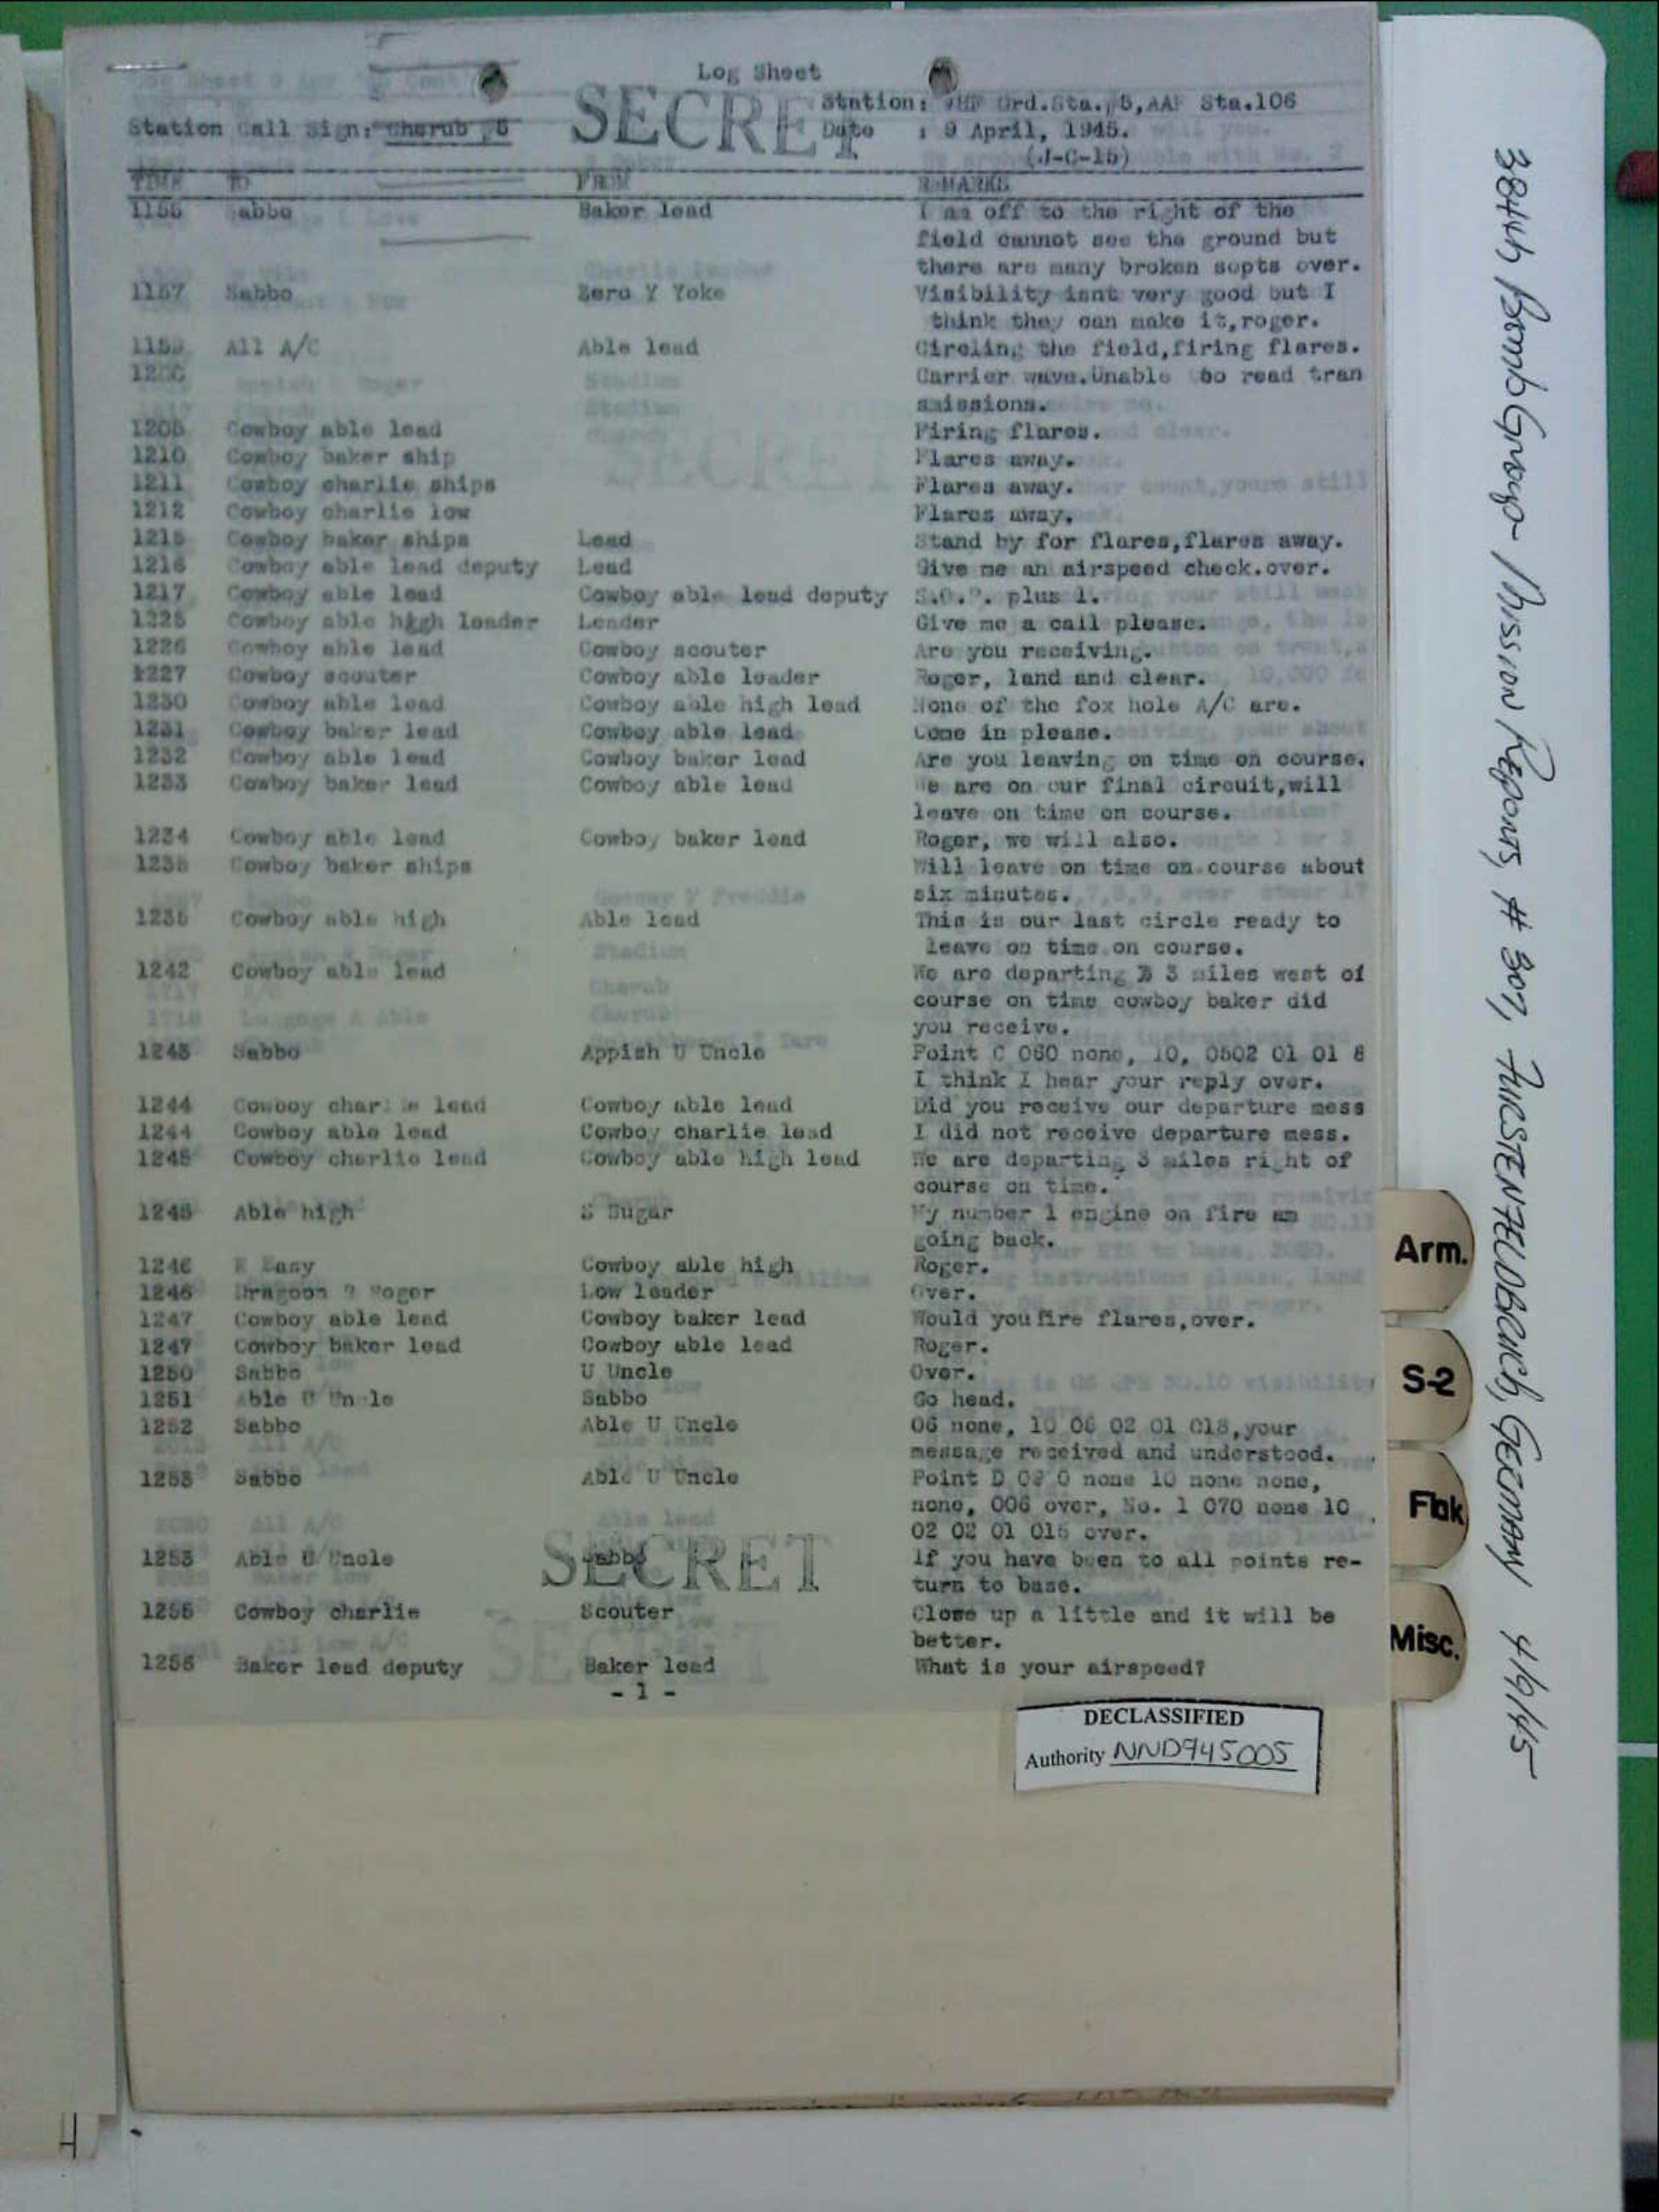 Log Sheet
SECRET
Station: VHF Grd.Sta., 5, AAF Sta.106
Station Call Sign: Cherub, 5
Date : 9 April, 1945.
(J-C-15)
TIME TO FROM REMARKS
1156 Sabbo Baker lead I am off to the right of the
field cannot see the ground but
there are many broken sopts over.
1157 Sabbo Zero Y Yoke Visibility isnt very good but I
think they can make it,roger.
All A/C Able lead Circling the field,firing flares.
1200 Carrier wave.Unable to read tran
smissions.
1205 Cowboy able lead Firing flares.
1210 Cowboy baker ship Flares away.
1211 Cowboy charlie ships Flares away.
1212 Cowboy charlie low Flares away.
1215 Cowboy baker ships Lead Stand by for flares,flares away.
1216 Cowboy able lead deputy Lead Give me an airspeed check.over.
1217 Cowboy able lead Cowboy able lead deputy S.O.P. plus 1.
1225 Cowboy able high leader Leader Give me a call please.
1226 Cowboy able lead Cowboy scouter Are you receiving.
1227 Cowboy scouter Cowboy able leader Roger, land and clear.
1230 Cowboy able lead Cowboy able high lead None of the fox hole A/C are.
1231 Cowboy baker lead Cowboy able lead Come in please.
1232 Cowboy able lead Cowboy baker lead Are you leaving on time on course.
1233 Cowboy baker lead Cowboy able lead We are on our final circuit,will
leave on time on course.
1234 Cowboy able lead Cowboy baker lead Roger, we will also.
1235 Cowboy baker ships Will leave on time on course about
six minutes.
1236 Cowboy able high Able lead This is our last circle ready to
leave on time on course.
1242 Cowboy able lead We are departing 3 miles west of
course on time cowboy baker did
you receive.
1243 Sabbo Appish U Uncle Point C 060 none, 10, 0502 01 01 8
I think I hear your reply over.
1244 Cowboy charlie lead Cowboy able lead Did you receive our departure mess
1244 Cowboy able lead Cowboy charlie lead I did not receive departure mess.
1245 Cowboy charlie lead Cowboy able high lead We are departing 3 miles right of
course on time.
1245 Able high S Sugar My number 1 engine on fire am
going back.
1246 E Easy Cowboy able high Roger.
1246 Dragoon R Roger Low leader Over.
1247 Cowboy able lead Cowboy baker lead Would you fire flares,over.
1247 Cowboy baker lead Cowboy able lead Roger.
1250 Sabbo U Uncle Over.
1251 Able U Uncle Sabbo Go head.
1252 Sabbo Able U Uncle 06 none, 10 06 02 01 018,your
message received and understood.
1253 Sabbo Able U Uncle Point D none 10 none none,
none, 006 over, No. 1 070 none 10
02 02 01 015 over.
1253 Able U Uncle Sabbo If you have been to all points re-
turn to base.
SECRET
1255 Cowboy charlie Scouter Close up a little and it will be
better.
1256 Baker lead deputy Baker lead What is your airspeed?
- 1 -
DECLASSIFIED
Authority NND745005
Arm.
S-2
Flak
Misc.
384th Bomb Group Mission Reports, # 307, FURSTENFELDBRUCH, GERMANY 4/9/45